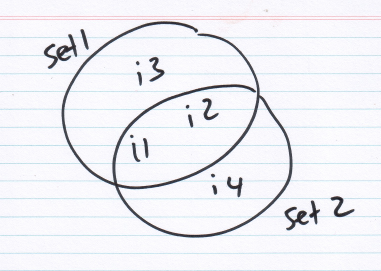 set1
i3
i2
i1
i4
set 2